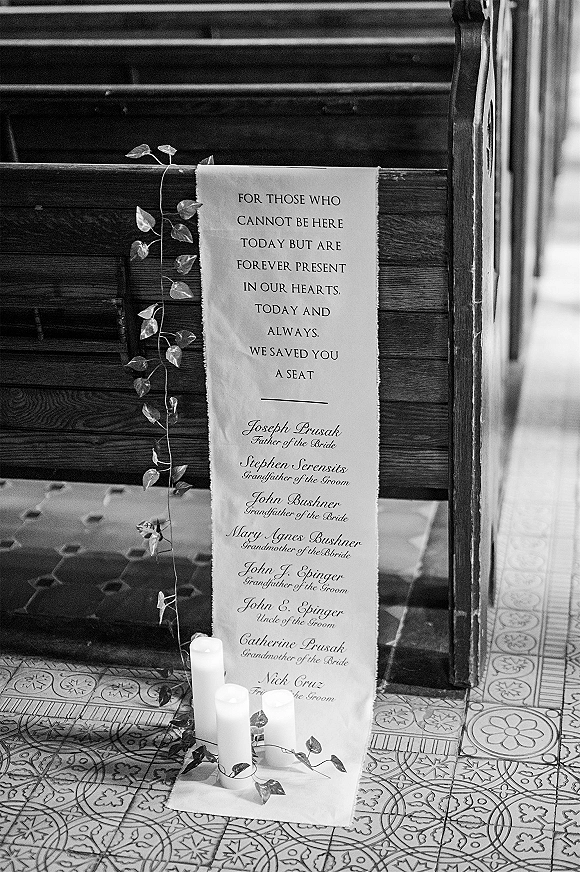 FOR THOSE WHO
CANNOT BE HERE
TODAY BUT ARE
FOREVER PRESENT
IN OUR HEARTS.
TODAY AND
ALWAYS.
WE SAVED YOU
A SEAT
Joseph Prusak
Father of the Bride
Stephen Serensits
Grandfather of the Groom
John Bushner
Grandfather of the Bride
Mary Agnes Bushner
Grandmother of the Bbride
John J. Epinger
Grandfather of the Groom
John E. Epinger
Uncle of the Groom
Catherine Prusak
Grandmother of the Bride
Nick Cruz
the Groom